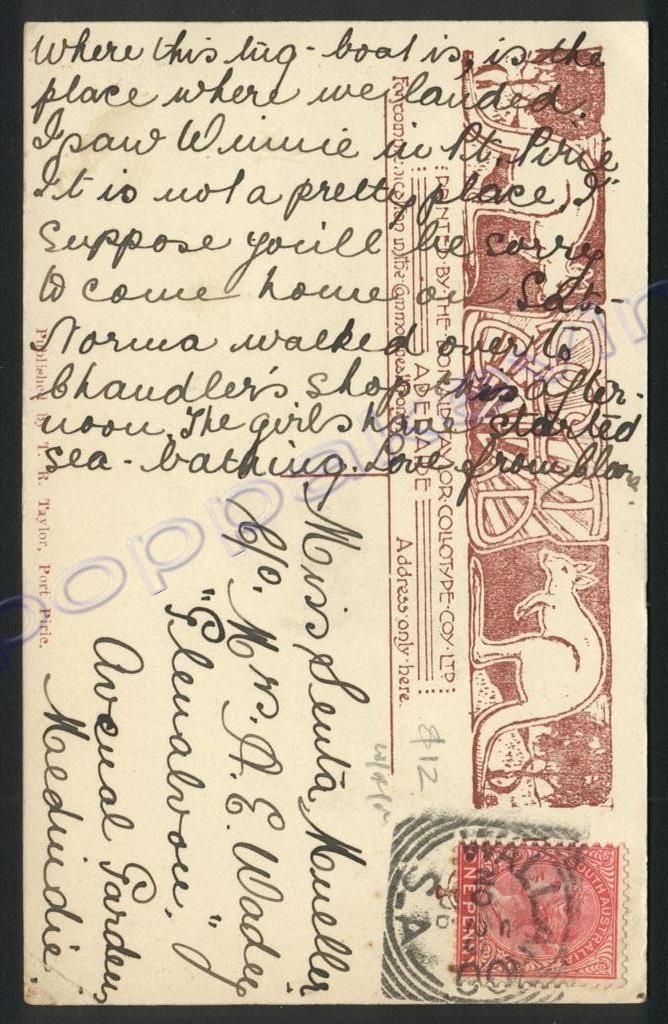 Where this tug-boat is, is the
place where we landed.
I saw Winnie in Pt. Pirie
It is not a pretty place. I
suppose you'll be sorry
to come home on Sat.
Norma walked over to
Chandler's shop this after-
noon. The girls have started
sea-bathing. Love from
Miss Senta Mueller
C/o. Mrs. A. E. Wadey
"Glenalvon,"
Avenal Gardens
Medindie.
Published by T. R. Taylor, Port Pirie.
Address only here.
ADELAIDE
PRINTED BY THE COLLOTYPE COY LTD
$12
SOUTH AUSTRALIA
ONE PENNY
S.A